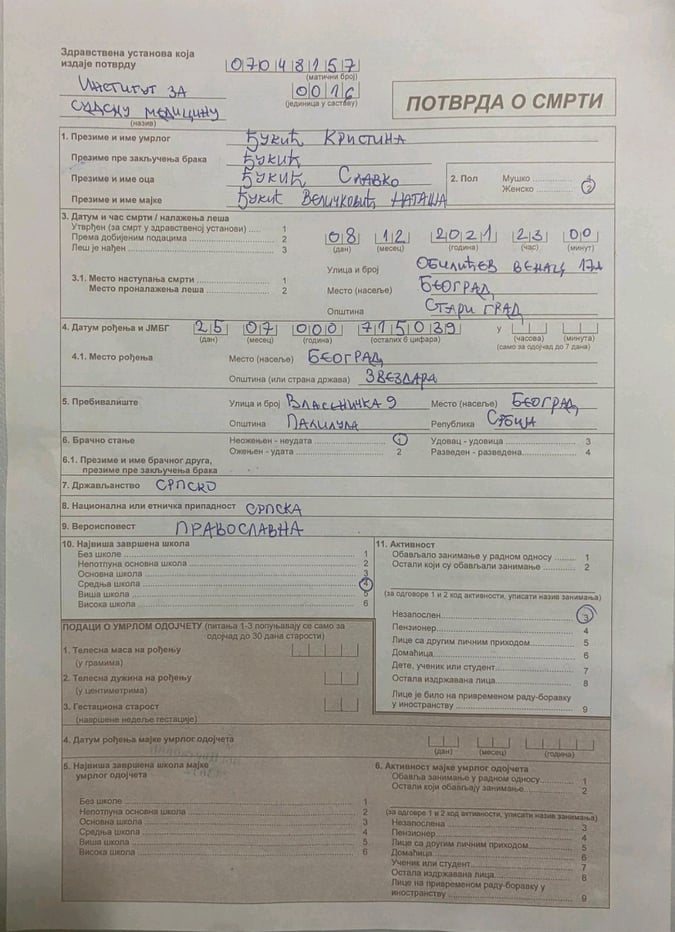 Здравствена установа која
издаје потврду
07048157
(матични број)
Институт за
0016
(јединица у саставу)
судску медицину
(назив)
ПОТВРДА О СМРТИ
1. Презиме и име умрлог Ђукић Кристина
Презиме пре закључења брака Ђукић
Презиме и име оца Ђукић Славко
Презиме и име мајке Ђукић Величковић Наташа
2. Пол Мушко 1
Женско 2
3. Датум и час смрти / налажења леша
Утврђен (за смрт у здравственој установи) 1
Према добијеним подацима 2
Леш је нађен 3
08 12 2021 23 00
(дан) (месец) (година) (час) (минут)
3.1. Место наступања смрти 1
Место проналажења леша 2
Улица и број Обилићев венац 17А
Место (насеље) Београд
Општина Стари град
4. Датум рођења и ЈМБГ 25 07 000 715039 у
(дан) (месец) (година) (осталих 6 цифара) (часова) (минута)
(само за одојчад до 7 дана)
4.1. Место рођења Место (насеље) Београд
Општина (или страна држава) Звездара
5. Пребивалиште Улица и број Власничка 9 Место (насеље) Београд
Општина Палилула Република Србија
6. Брачно стање Неожењен - неудата 1 Удовац - удовица 3
Ожењен - удата 2 Разведен - разведена 4
6.1. Презиме и име брачног друга,
презиме пре закључења брака
7. Држављанство српско
8. Национална или етничка припадност српска
9. Вероисповест православна
10. Највиша завршена школа
Без школе 1
Непотпуна основна школа 2
Основна школа 3
Средња школа 4
Виша школа 5
Висока школа 6
11. Активност
Обављало занимање у радном односу 1
Остали који су обављали занимање 2
(за одговор 1 и 2 код активности, уписати назив занимања)
Незапослен 3
Пензионер 4
Лице са другим личним приходом 5
Домаћица 6
Дете, ученик или студент 7
Остала издржавана лица 8
Лице је било на привременом раду-боравку
у иностранству 9
ПОДАЦИ О УМРЛОМ ОДОЈЧЕТУ (питања 1-3 попуњавају се само за
одојчад до 30 дана старости)
1. Телесна маса на рођењу
(у грамима)
2. Телесна дужина на рођењу
(у центиметрима)
3. Гестациона старост
(навршене недеље гестације)
4. Датум рођења мајке умрлог одојчета
(дан) (месец) (година)
5. Највиша завршена школа мајке
умрлог одојчета
Без школе 1
Непотпуна основна школа 2
Основна школа 3
Средња школа 4
Виша школа 5
Висока школа 6
6. Активност мајке умрлог одојчета
Обавља занимање у радном односу 1
Остали који обављају занимање 2
(за одговоре 1 и 2 код активности, уписати назив занимања)
Незапослена 3
Пензионер 4
Лице са другим личним приходом 5
Домаћица 6
Ученик или студент 7
Остала издржавана лица 8
Лице на привременом раду-боравку у
иностранству 9